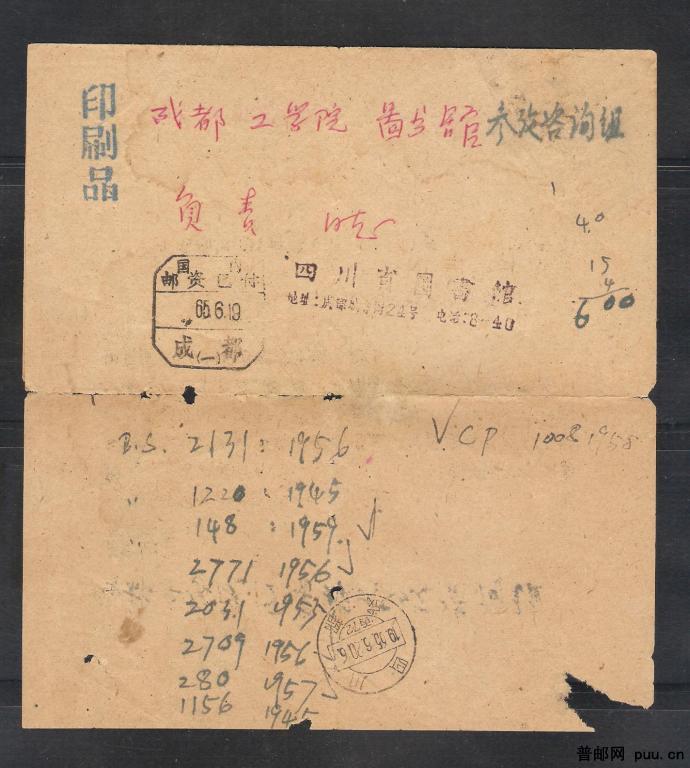 印刷品
成都工学院 图书馆参攷咨询组
负责 同志
国内
邮资已付
65.6.19
成(一)都
四川省图书馆
24号 电话:8-40
4.0
15
4
6 00
B.S. 2131: 1956
√CP 1008 1958
" 1220: 1945
148: 1959
2771 1956
2031 1955
2709 1956
280 1957
1156 1945
四川
普邮网 puu.cn